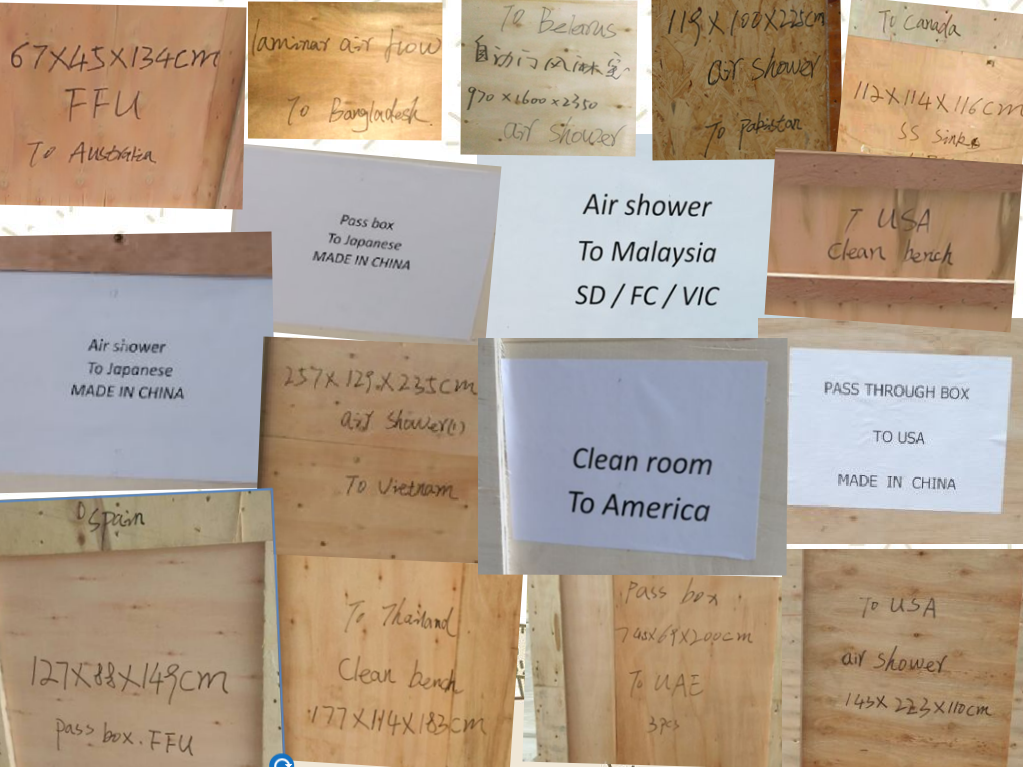 67X45X134cm
FFU
To Australia
laminar air flow
To Bangladesh
To Belarus
自动门风淋室
970×1600×2350
air shower
119X100X225cm
air shower
To Pakistan
To Canada
112X114X116cm
SS Sink
Pass box
To Japanese
MADE IN CHINA
Air shower
To Malaysia
SD / FC / VIC
T USA
Clean bench
Air shower
To Japanese
MADE IN CHINA
257X129X235cm
air shower(1)
To Vietnam
Clean room
To America
PASS THROUGH BOX
TO USA
MADE IN CHINA
Spain
127X88X149cm
pass box. FFU
To Thailand
Clean bench
177X114X183cm
Pass box
To UAE
3pcs
To USA
air shower
143X223X110cm